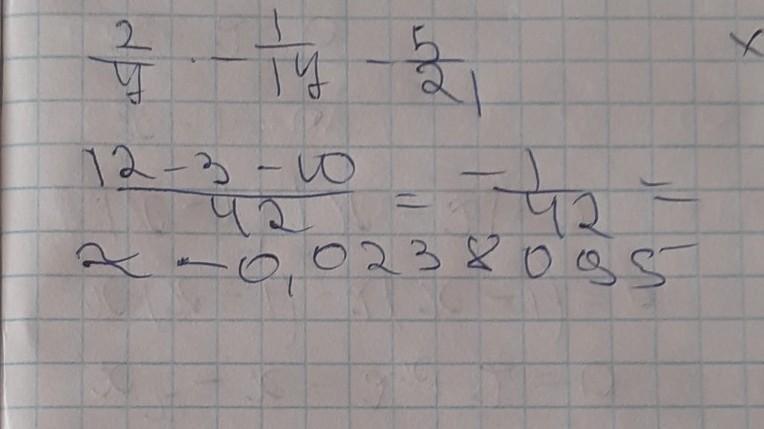 2/7 - 1/14 - 5/21 x
(12 - 3 - 10)/42 = -1/42 =
≈ -0,0238095